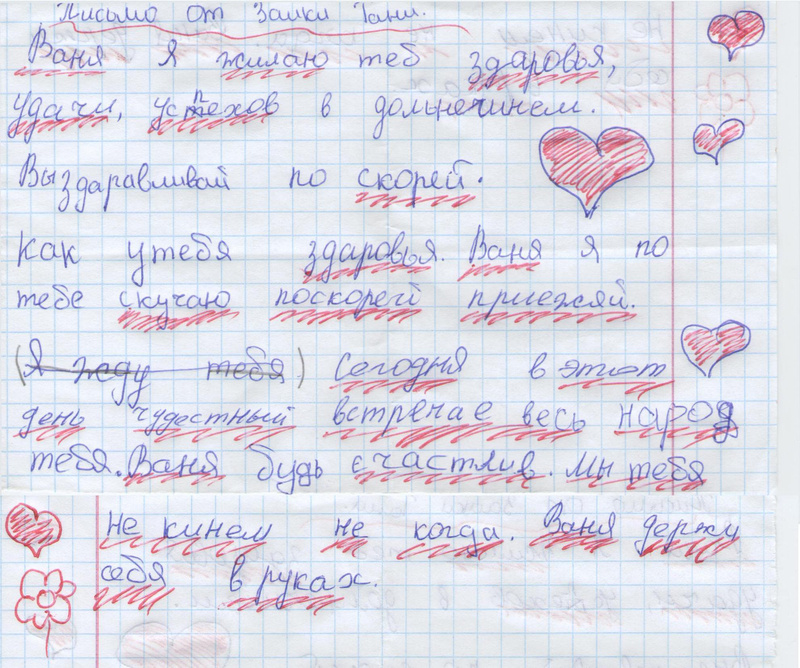 Письмо от Заики Тани.
Ваня я жилаю теб здаровья,
удачи, успехов в дольнечинем.
Выздаравливай по скорей.
Как утебя здаровья. Ваня я по
тебе скучаю поскорей приежяй.
(Я жду тебя) Сегодня в этот
день чудестный встречае весь народ
тебя. Ваня будь счастлив. Мы тебя
не кинем не когда. Ваня держу
себя в руках.